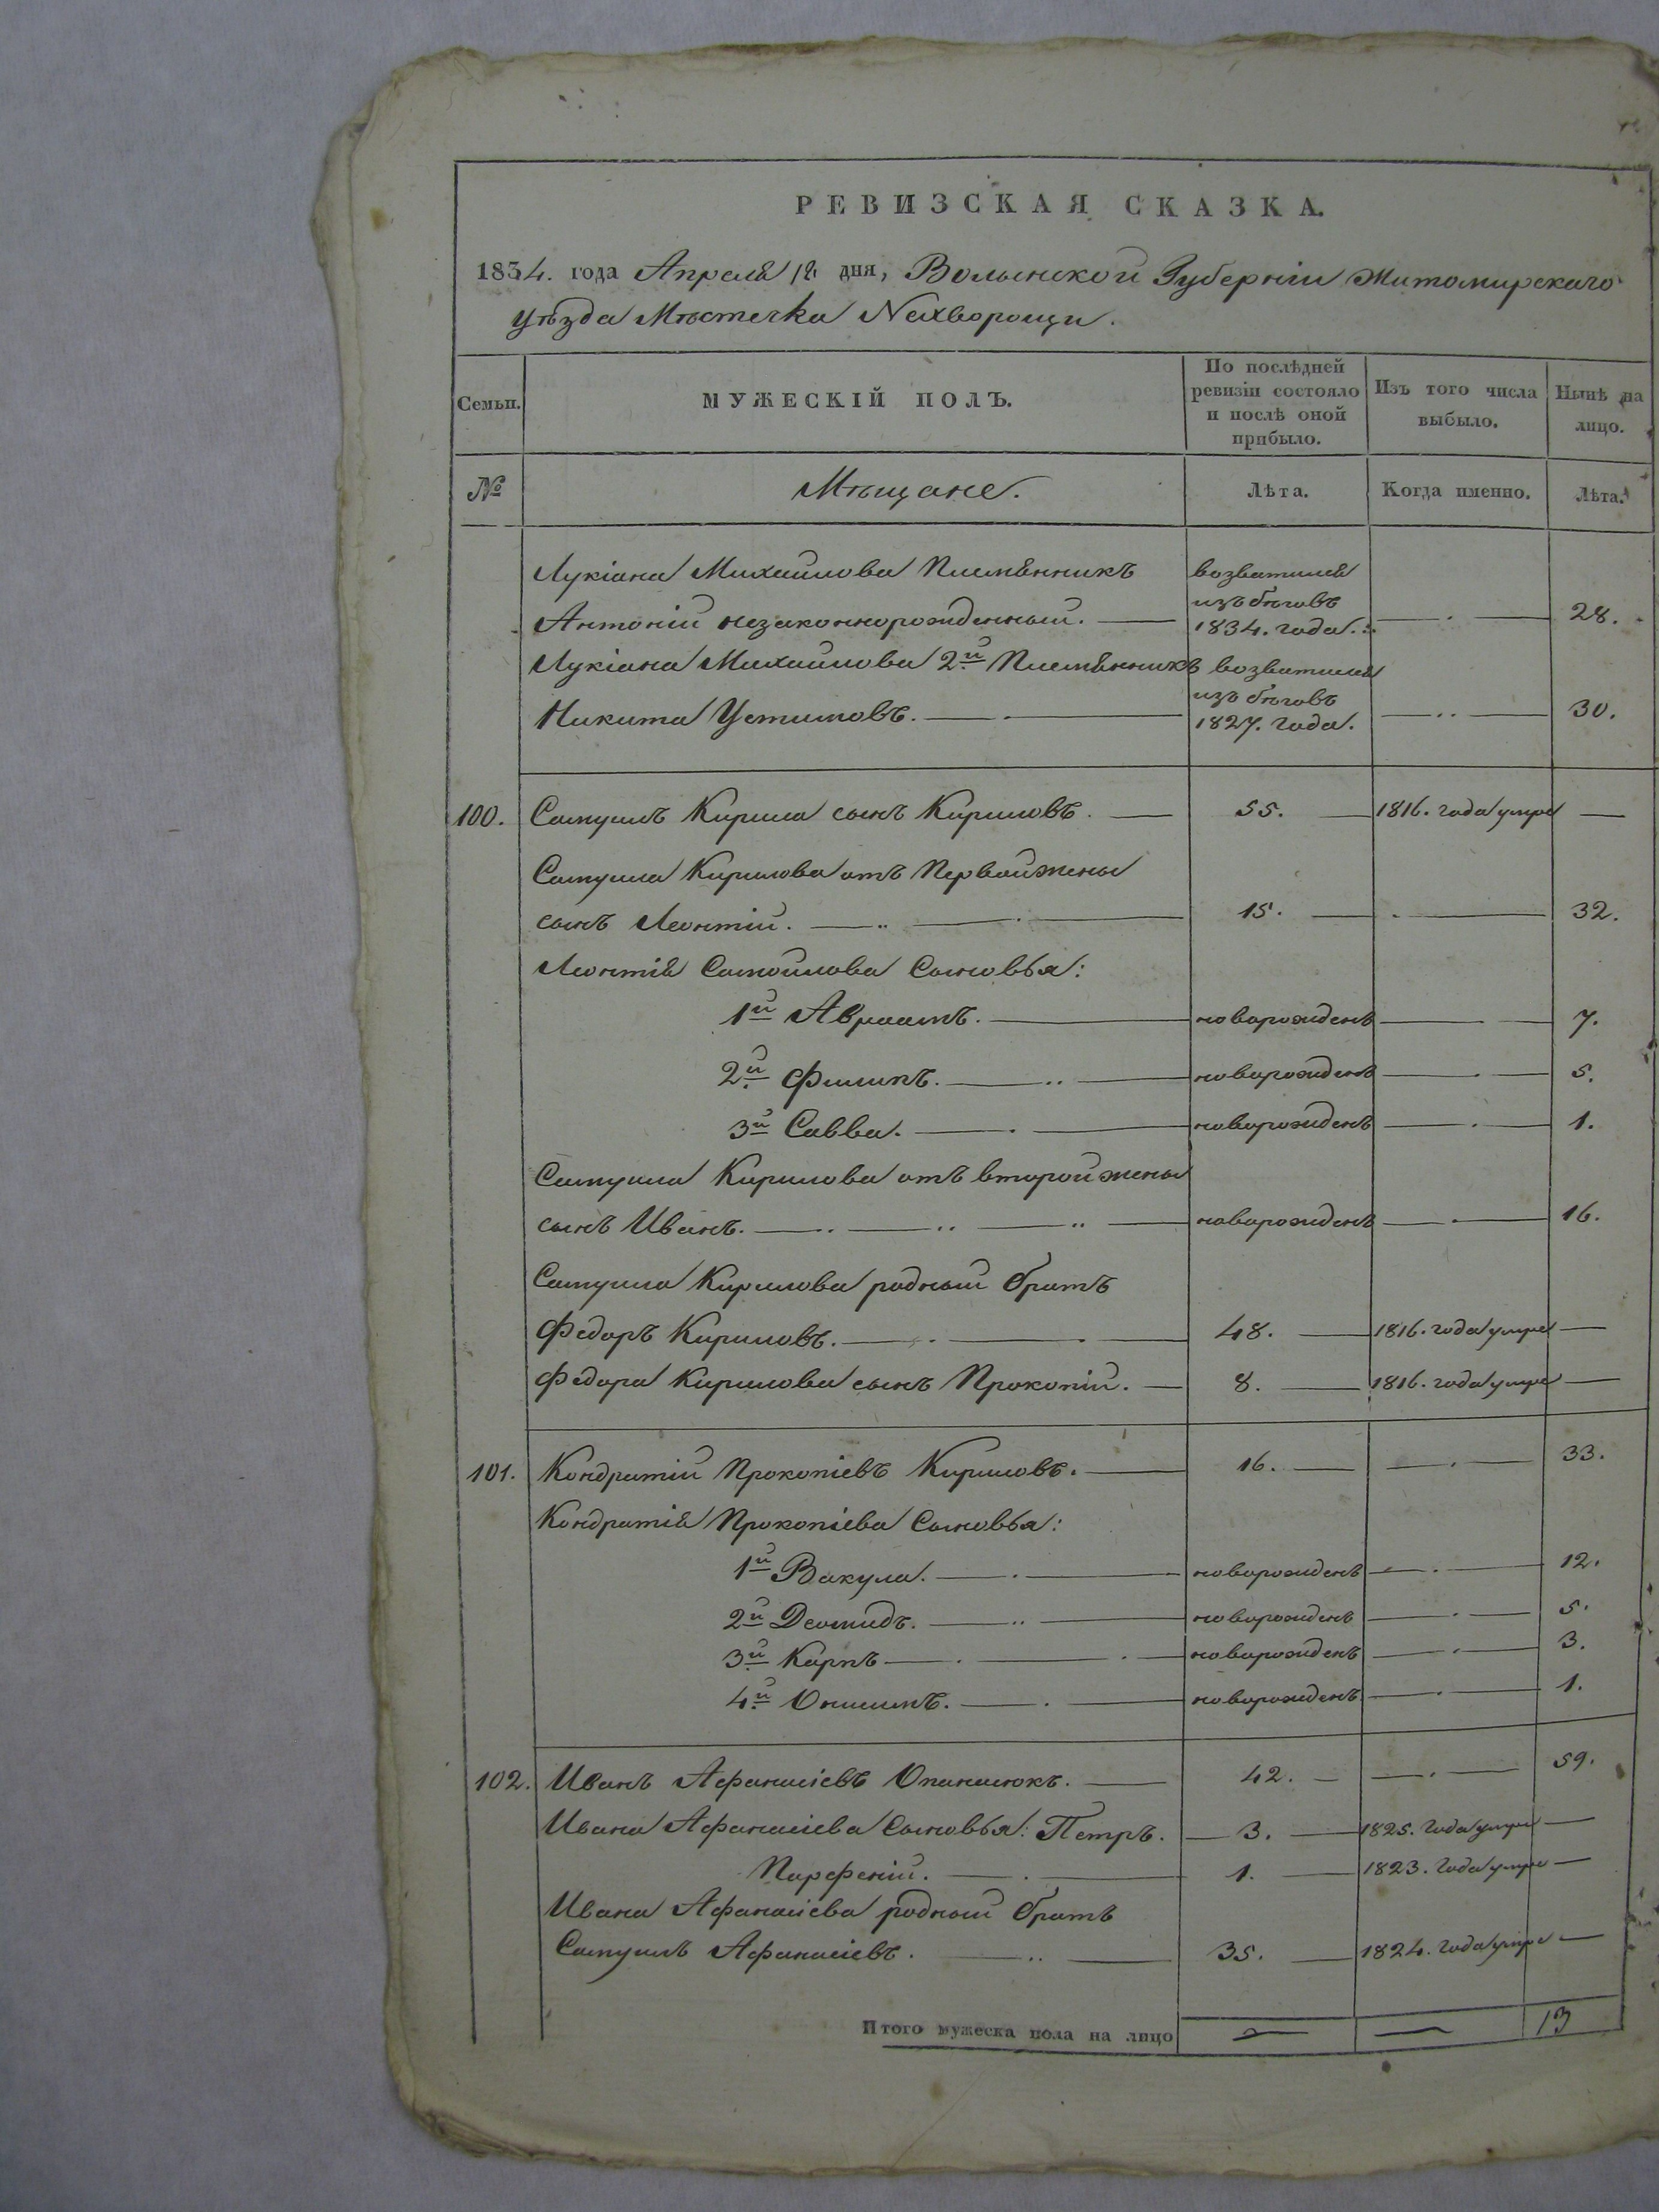 РЕВИЗСКАЯ СКАЗКА.
1834. года Апреля 12 дня, Волынской Губернiи Житомирскаго
уѣзда Мѣстечка Нехворощи.
Семьи. МУЖЕСКIЙ ПОЛЪ. По послѣдней ревизiи состояло и послѣ оной прибыло. Изъ того числа выбыло. Нынѣ на лицо.
№ Мѣщане. Лѣта. Когда именно. Лѣта.
Лукiана Михайлова Племянникъ возватился
Антонiй незаконнорожденный. — изъ бѣговъ 1834. года. — 28.
Лукiана Михайлова 2й Племянникъ возватился
Никита Устимовъ. — изъ бѣговъ 1827. года. — 30.
100. Самуилъ Кирила сынъ Кириловъ. — 55. — 1816. года умре —
Самуила Кирилова отъ Первой жены
сынъ Леонтiй. — 15. — 32.
Леонтiя Самойлова Сыновья:
1й Авраамъ. — новорожденъ — 7.
2й Филипъ. — новорожденъ — 5.
3й Савва. — новорожденъ — 1.
Самуила Кирилова отъ второй жены
сынъ Иванъ. — новорожденъ — 16.
Самуила Кирилова родный братъ
Федоръ Кириловъ. — 48. — 1816. года умре —
Федора Кирилова сынъ Прокопiй. — 8. — 1816. года умре —
101. Кондратiй Прокопiевъ Кириловъ. — 16. — 33.
Кондратiя Прокопiева Сыновья:
1й Вакула. — новорожденъ — 12.
2й Деомидъ. — новорожденъ — 5.
3й Карпъ — новорожденъ — 3.
4й Онисимъ. — новорожденъ — 1.
102. Иванъ Афанасiевъ Опанасюкъ. — 42. — 59.
Ивана Афанасiева Сыновья: Петръ. — 3. — 1825. года умре —
Парфенiй. — 1. — 1823. года умре —
Ивана Афанасiева родный братъ
Самуилъ Афанасiевъ. — 35. — 1824. года умре —
Итого мужеска пола на лицо — — 13